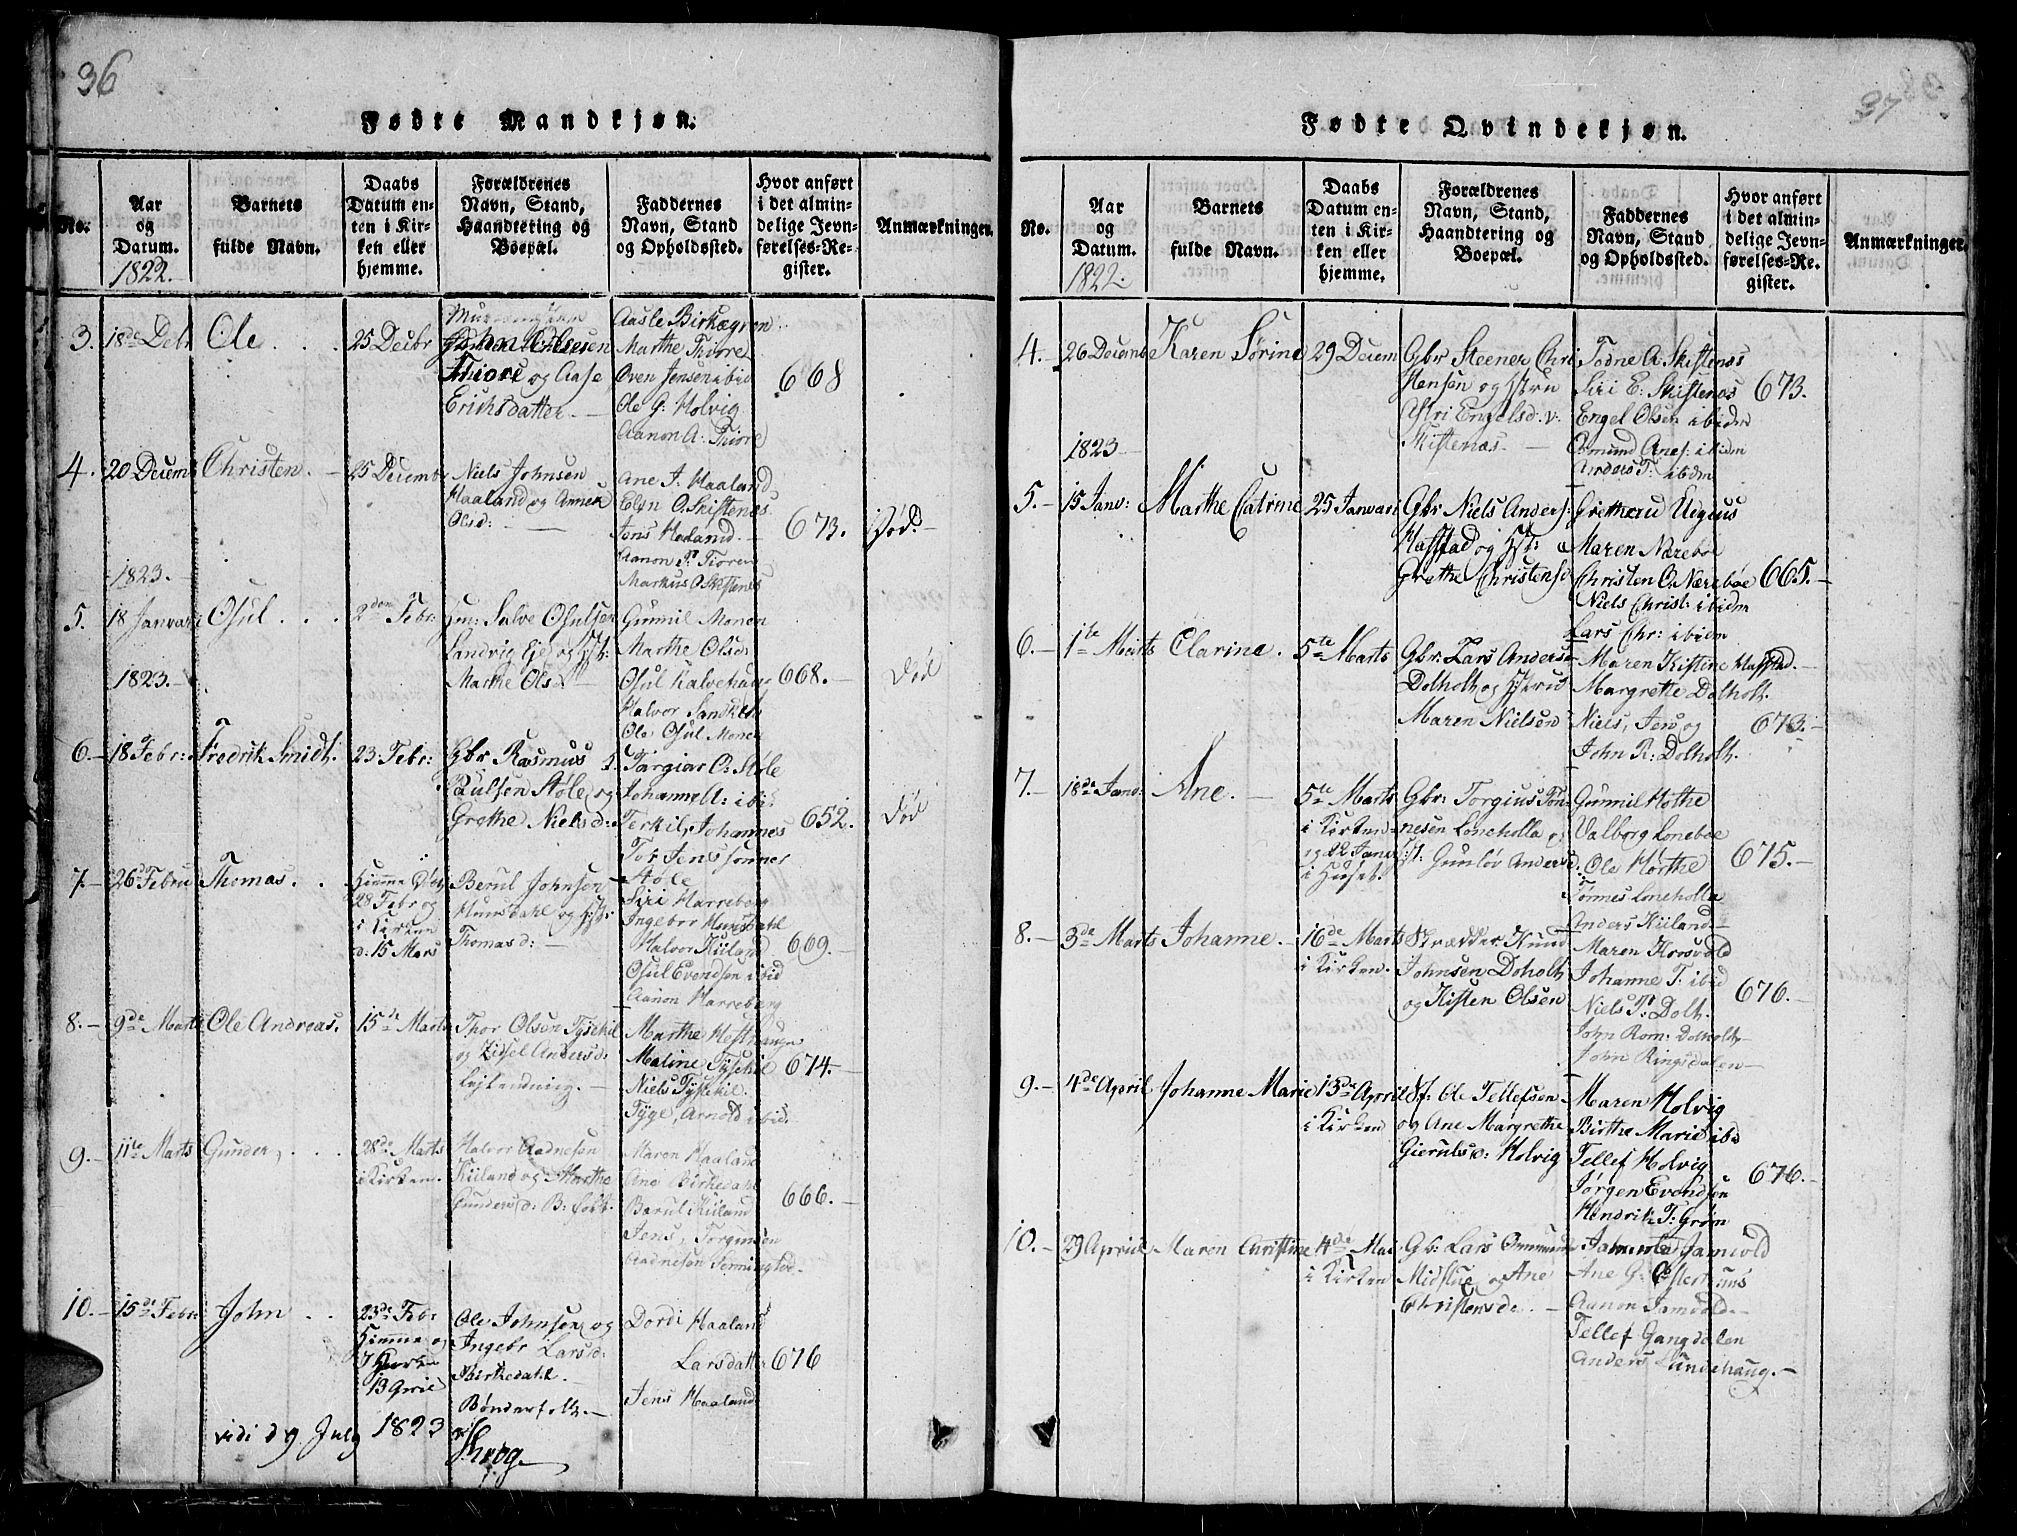 36
Fødte Mandkjøn.
No.
Aar
og
Datum.
1822.
Barnets
fulde Navn.
Daabs
Datum en-
ten i Kir-
ken eller
hjemme.
Forældrenes
Navn, Stand,
Haandtering og
Boepæl.
Faddernes
Navn, Stand
og Opholdssted.
Hvor anført
i det almin-
delige Jevn-
førelses-Re-
gister.
Anmærkninger.
3.
18de Debr
Ole
25 Decbr
Thiore og Aase
Erichsdatter.
Aasle Birkægren
Marthe Thiore
Oven Jensen ibid
Ole G: Holvig
Aanon A: Thiore
668
4.
20 Decemb
Christen.
25 Decembr
Niels Johnsen
Haaland og Anne
Olsd:
Ane J. Haaland
Elen O. Skiftenæs
Jens Haaland
Aanon P: Tioren
Markus O. Skiftenes
673.
Død.
1823.
5.
18 Januari
Osul
2den Febr:
Hm: Salve Osulsen
Landvig Eje og Hst:
Marthe Olsd.
Gunnil Monen
Marthe Olsd.
Osul Kalvehaug
Halvor Sandkleiv
Ole Osul Monen
668.
Død
1823.
6.
18 Febr:
Fredrik Smidt.
23 Febr:
Gbr Rasmus
Poulsen Støle og
Grethe Nielsd:
Targiar O. Støle
Johanne A: ibid
Terkil, Johannes
Tor Jens sønner
Støle
652.
Død
7.
26 Febru
Thomas.
Hiemme Døbt
28 Febr og
i Kirken
d: 15 Mars
Berul Johnsen
Humsdahl og Hst:
Thomasd:
Siri Harreberg
Ingebor Humsdahl
Halvor Kiiland
Osul Evendsen ibid
Aanon Harreberg
669.
8.
9de Marts
Ole Andreas.
15de Marts
Thor Olsen Tyskil
og Zidsel Andersd:
Lejlændning.
Marthe Hesthaugen
Maline Tyskil
Niels Tyskil.
Tyge, Arnold ibid.
674.
9.
11te Marts
Gunder,
28de Marts
i Kirken.
Halvor Aadnesen
Kiiland og Marthe
Gundersd: B: folk.
Maren Haaland
Ane Birkedahl
Barul Kiiland
Jens, Torgiusen
Aadnesøn
666.
10.
15de Febr
John
23de Febr
Hiemme og
i Kirken
13 April
Ole Johnsen og
Ingebr Larsd:
Birkedahl.
Bønderfolk.
Dordi Haaland
Larsdatter
Jens Haaland
676
vidi d 9 July 1823
Krog
37
Fødte Qvindekjøn.
No.
Aar
og
Datum.
1822.
Barnets
fulde Navn.
Daabs
Datum en-
ten i Kir-
ken eller
hjemme.
Forældrenes
Navn, Stand,
Haandtering og
Boepæl.
Faddernes
Navn, Stand
og Opholdssted.
Hvor anført
i det almin-
delige Jevn-
førelses-Re-
gister.
Anmærkninger.
4.
26 Decemb
Karen Sørine
29 Decem
Gbr Steener Chri
Hensen og Hstru
Astri Engelsd. v:
Skiftenæs.
Todne A. Skiftenæs
Siri E. Skiftenæs
Engel Olsen ibidm
Omund Anes: ibidm
Anders T: ibidm
673.
1823
5.
15 Janv:
Marthe Catrine
25 Januari
Gbr Niels Anders:
Hafstad og Hst:
Grethe Christensd
Maren Nærebøe
Christen O. Nærebøe
Niels Christ: ibidm
Lars Chr: ibidm
665.
6.
1te Marts
Clarine.
5te Marts
Gbr: Lars Anderse
Dolholt og Hstru
Maren Nielsen
Maren Kistine Hafstad.
Margrethe Dolholt.
Niels, Jens og
John R: Dolholt.
673.
7.
18de Janv:
Ane.
5te Marts
i Kirken
og 22 Janv
i Huset.
Gbr: Torgius Tøn-
nesen Loneholla og
Hst: Gunløv Andersd.
Gunnil Hørthe
Valborg Lonebøe
Ole Hørthe
Tønnes Loneholla
Anders Kiiland.
675.
8.
3de Marts
Johanne.
16de Marts
i Kirken.
Skrædder Knud
Johnsen Doholt
og Kisten Olsen
Maren Koosvold
Johanne T: ibid
Niels T: Dolh.
John Rom: Dolholt
John Ringsdalen
676.
9.
4de April
Johanne Marie
13de April
i Kirken
Sf: Ole Tellefsen
og Ane Margrethe
Gierulsd: Holvig
Maren Holvig
Birthe Marie ibd
Tellef Holvig
Jørgen Evendsen
Hendrik T: Grøm
676.
10.
29 April
Maren Christine
4de Mai
i Kirken
Gb: Lars Ommunds
Midflue og Ane
Christensdr.
Ane G: Østerhuus
Aanon Jamvold.
Tellef Gangdalen
Anders Lundehaug.